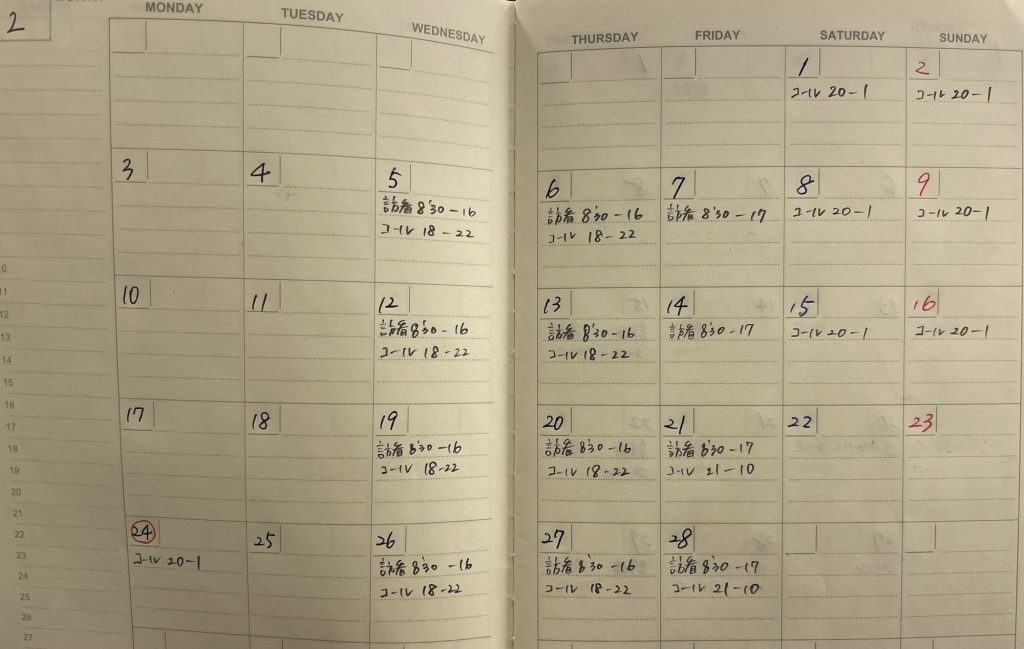 2
MONDAY
TUESDAY
WEDNESDAY
THURSDAY
FRIDAY
SATURDAY
SUNDAY
1
コール 20-1
2
コール 20-1
3
4
5
訪看 8:30-16
コール 18-22
6
訪看 8:30-16
コール 18-22
7
訪看 8:30-17
8
コール 20-1
9
コール 20-1
10
11
12
訪看 8:30-16
コール 18-22
13
訪看 8:30-16
コール 18-22
14
訪看 8:30-17
15
コール 20-1
16
コール 20-1
17
18
19
訪看 8:30-16
コール 18-22
20
訪看 8:30-16
コール 18-22
21
訪看 8:30-17
コール 21-10
22
23
24
コール 20-1
25
26
訪看 8:30-16
コール 18-22
27
訪看 8:30-16
コール 18-22
28
訪看 8:30-17
コール 21-10
11
12
13
14
15
16
17
18
19
20
21
22
23
24
25
26
27